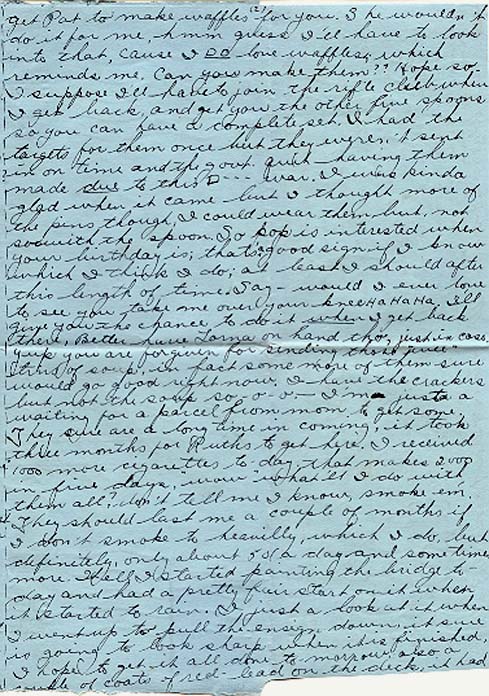 get Pat to make waffles for you. She wouldn't
do it for me h-m-m guess I'll have to look
into that, cause I do love waffles, which
reminds me, Can you make them?? Hope so.
I suppose I'll have to join the rifle club when
I get back and get you the other five spoons
so you can have a complete set. I had the
targets for them once but they weren't sent
in on time and the govt. quit having them
made due to this D--- war. I was kinda
glad when it came but I thought more of
the pins, though, I could wear them but not
so with the spoon. So Pop is interested when
your birthday is; that's a good sign, if I know
which I think I do; at least I should after
this length of time. Say - would I ever love
to see you take me over your knee Ha Ha Ha. I'll
give you the chance to do it when I get back
there, Better have Lorna on hand tho, just in case.
Yup you are forgiven for sending those five
tins of soup, in fact some more of them sure
would go good right now, I have the crackers
but not the soup so, o - o - I'm just a
waiting for a parcel from mom to get some.
They sure are a long time in coming, it took
three months for Ruth's to get here. I received
1000 more cigarettes to-day, that makes 2000
in five days, wow what'll I do with
them all? don't tell me I know, smoke em.
They should last me a couple of months if
I don't smoke to heavilly, which I do, but
definitely, only about a day and some times
more. Well I started painting the bridge to-
day and had a pretty fair start on it when
it started to rain. I just a look at it when
I went up to pull the ensign down, it sure
is going to look sharp when it is finished
I hope to get it all done to-morrow, also a
couple of coats of red-lead on the deck, it had